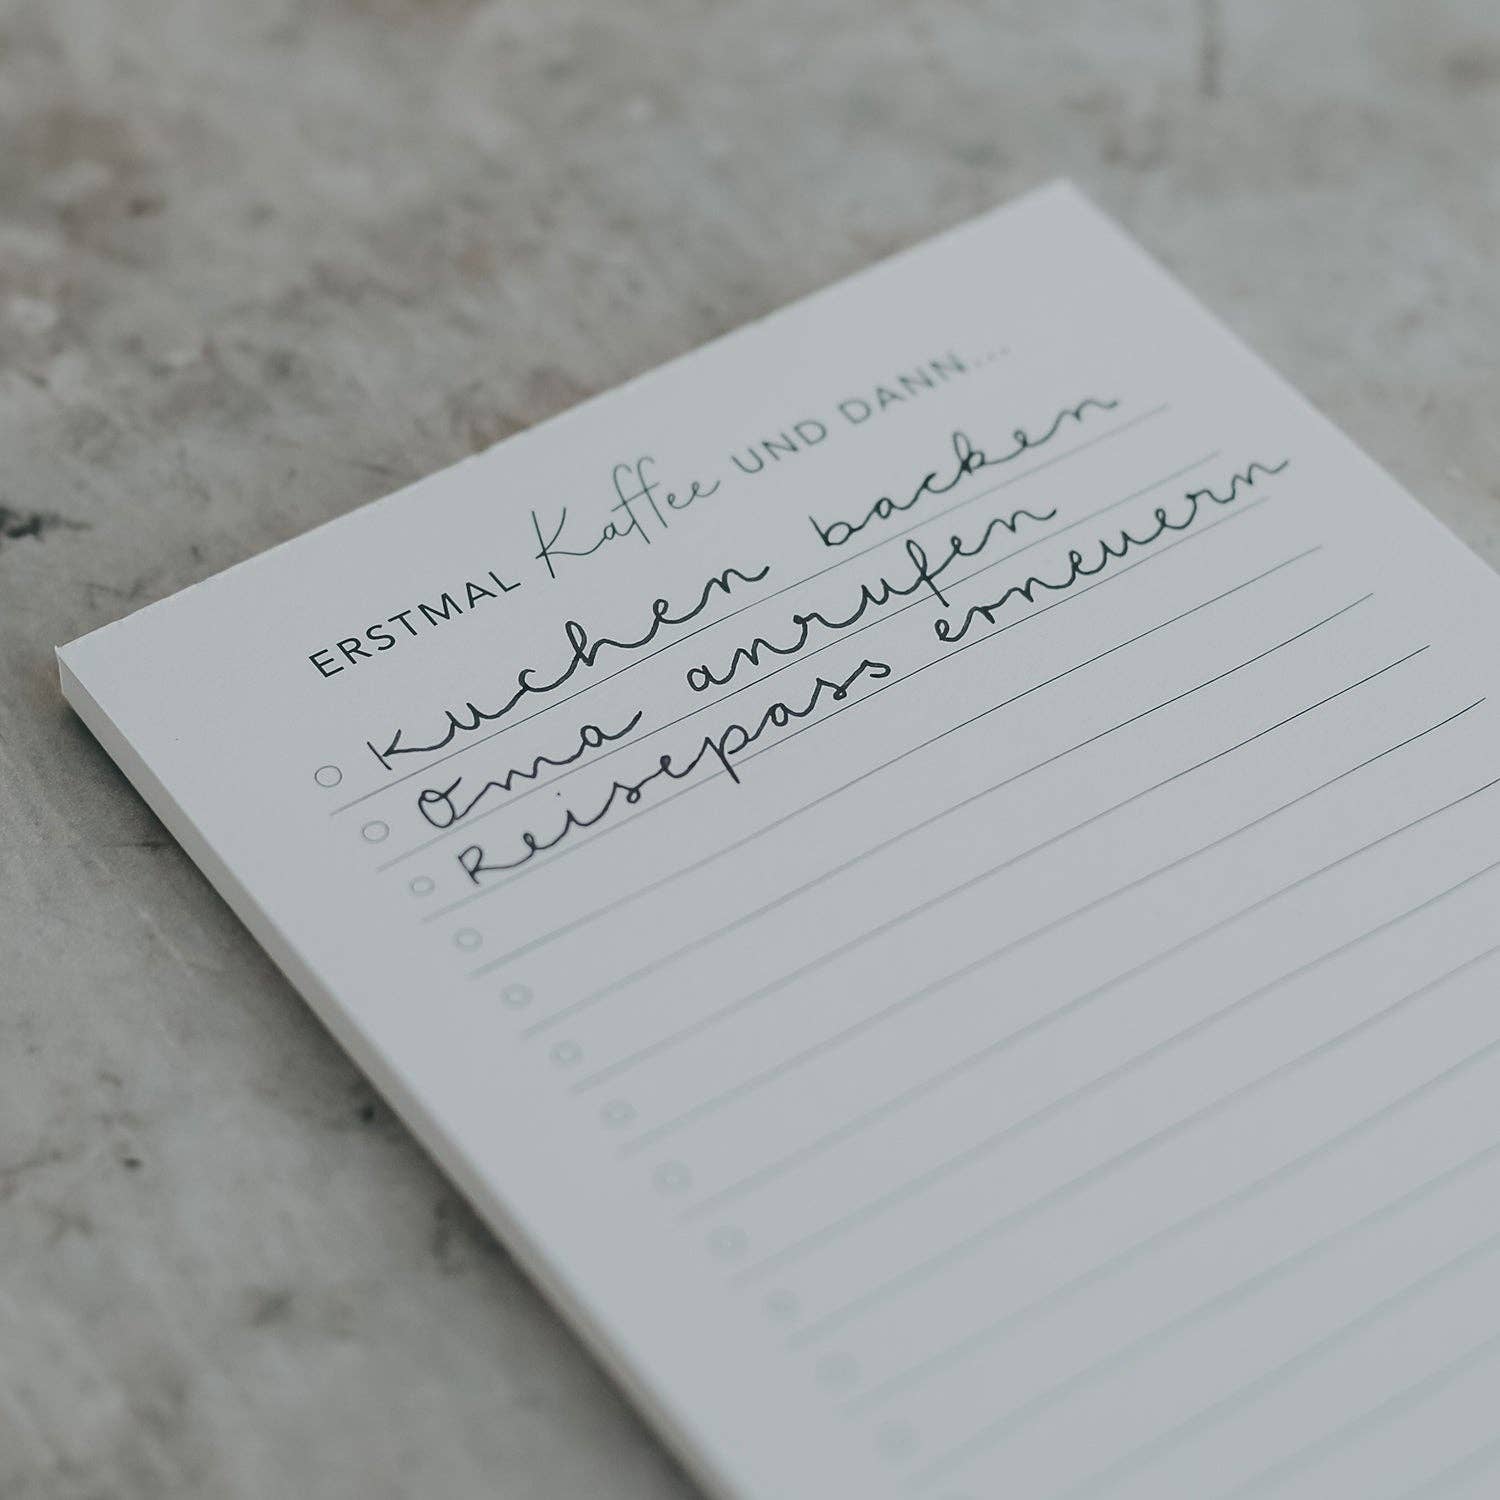 ERSTMAL Kaffee UND DANN...
Kuchen backen
Oma anrufen
Reisepass erneuern